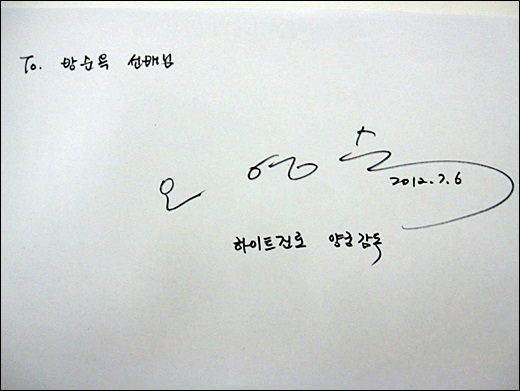 To. 방순욱 선배님
2012.7.6
하이트진로 양궁감독